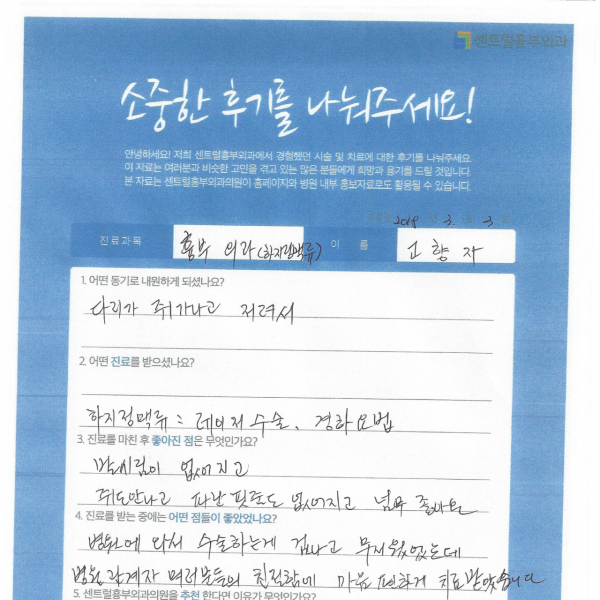 센트럴흉부외과
소중한 후기를 나눠주세요!
안녕하세요! 저희 센트럴흉부외과에서 경험했던 시술 및 치료에 대한 후기를 나눠주세요.
이 자료는 여러분과 비슷한 고민을 겪고 있는 많은 분들에게 희망과 용기를 드릴 것입니다.
본 자료는 센트럴흉부외과의원이 홈페이지와 병원 내부 홍보자료로도 활용될 수 있습니다.
2018 3. 3
진료과목 흉부 외과(하지정맥류) 이 름 고향자
1. 어떤 동기로 내원하게 되셨나요?
다리가 쥐가나고 저려서
2. 어떤 진료를 받으셨나요?
하지정맥류 : 레이저수술, 경화요법
3. 진료를 마친 후 좋아진 점은 무엇인가요?
발시림이 없어지고
쥐도안나고 파란 핏줄도 없어지고 넘 좋아요
4. 진료를 받는 중에는 어떤 점들이 좋았었나요?
병원에 와서 수술하는게 겁나고 무서웠었는데
병원 관계자 여러분들의 친절함에 마음 편하게 치료받았습니다
5. 센트럴흉부외과의원을 추천 한다면 이유가 무엇인가요?